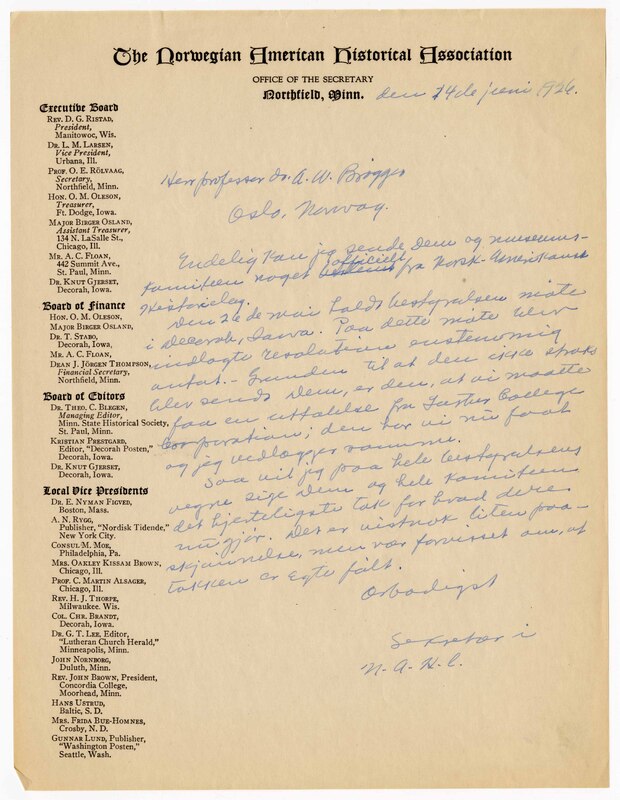 The Norwegian American Historical Association
OFFICE OF THE SECRETARY
Northfield, Minn.
den 14de juni 1926.
Executive Board
REV. D. G. RISTAD,
President,
Manitowoc, Wis.
DR. L. M. LARSEN,
Vice President,
Urbana, Ill.
PROF. O. E. RÖLVAAG,
Secretary,
Northfield, Minn.
HON. O. M. OLESON,
Treasurer,
Ft. Dodge, Iowa.
MAJOR BIRGER OSLAND,
Assistant Treasurer,
134 N. LaSalle St.,
Chicago, Ill.
MR. A. C. FLOAN,
442 Summit Ave.,
St. Paul, Minn.
DR. KNUT GJERSET,
Decorah, Iowa.
Board of Finance
HON. O. M. OLESON,
MAJOR BIRGER OSLAND,
DR. T. STABO,
Decorah, Iowa,
MR. A. C. FLOAN,
DEAN J. JÖRGEN THOMPSON,
Financial Secretary,
Northfield, Minn.
Board of Editors
DR. THEO. C. BLEGEN,
Managing Editor,
Minn. State Historical Society,
St. Paul, Minn.
KRISTIAN PRESTGARD,
Editor, "Decorah Posten,"
Decorah, Iowa.
DR. KNUT GJERSET,
Decorah, Iowa.
Local Vice Presidents
DR. E. NYMAN FIGVED,
Boston, Mass.
A. N. RYGG,
Publisher, "Nordisk Tidende,"
New York City.
CONSUL M. MOE,
Philadelphia, Pa.
MRS. OAKLEY KISSAM BROWN,
Chicago, Ill.
PROF. C. MARTIN ALSAGER,
Chicago, Ill.
REV. H. J. THORPE,
Milwaukee. Wis.
COL. CHR. BRANDT,
Decorah, Iowa.
DR. G. T. LEE, Editor,
"Lutheran Church Herald,"
Minneapolis, Minn.
JOHN NORNBORG,
Duluth, Minn.
REV. JOHN BROWN, President,
Concordia College,
Moorhead, Minn.
HANS USTRUD,
Baltic, S. D.
MRS. FRIDA BUE-HOMNES,
Crosby, N. D.
GUNNAR LUND, Publisher,
"Washington Posten,"
Seattle, Wash.
Herr professor dr. A. W. Brøgger
Oslo, Norway.
Endelig kan jeg sende Dem og museums-
komiteen noget officielt fra Norsk-Amerikansk
Historielag.
Den 26de mai holdt bestyrelsen møte
i Decorah, Iowa. Paa dette møte blev
indlagte resolution enstemmig
antat. - Grunden til at den ikke straks
blev sendt Dem, er den, at vi maatte
faa en uttalelse fra Luther College
Corporation; den har vi nu faat
og jeg vedlægger samme.
Saa vil jeg paa hele bestyrelsens
vegne sige Dem og hele komiteen
det hjerteligste tak for hvad dere
nu gjør. Det er vistnok liten paa-
skjønnelse, men vær forvisset om, at
takken er egte følt.
Ærbødigst
Sekretær i
N. A. H. L.